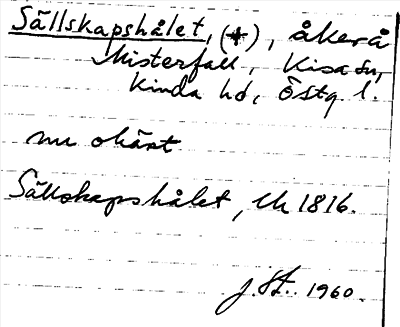 Sällskapshålet, (+), åkerå
Misterfall, Kisa sn,
Kinda hd, Östg l.
nu okänt
Sällskapshålet, Uh 1816.
J. St. 1960.